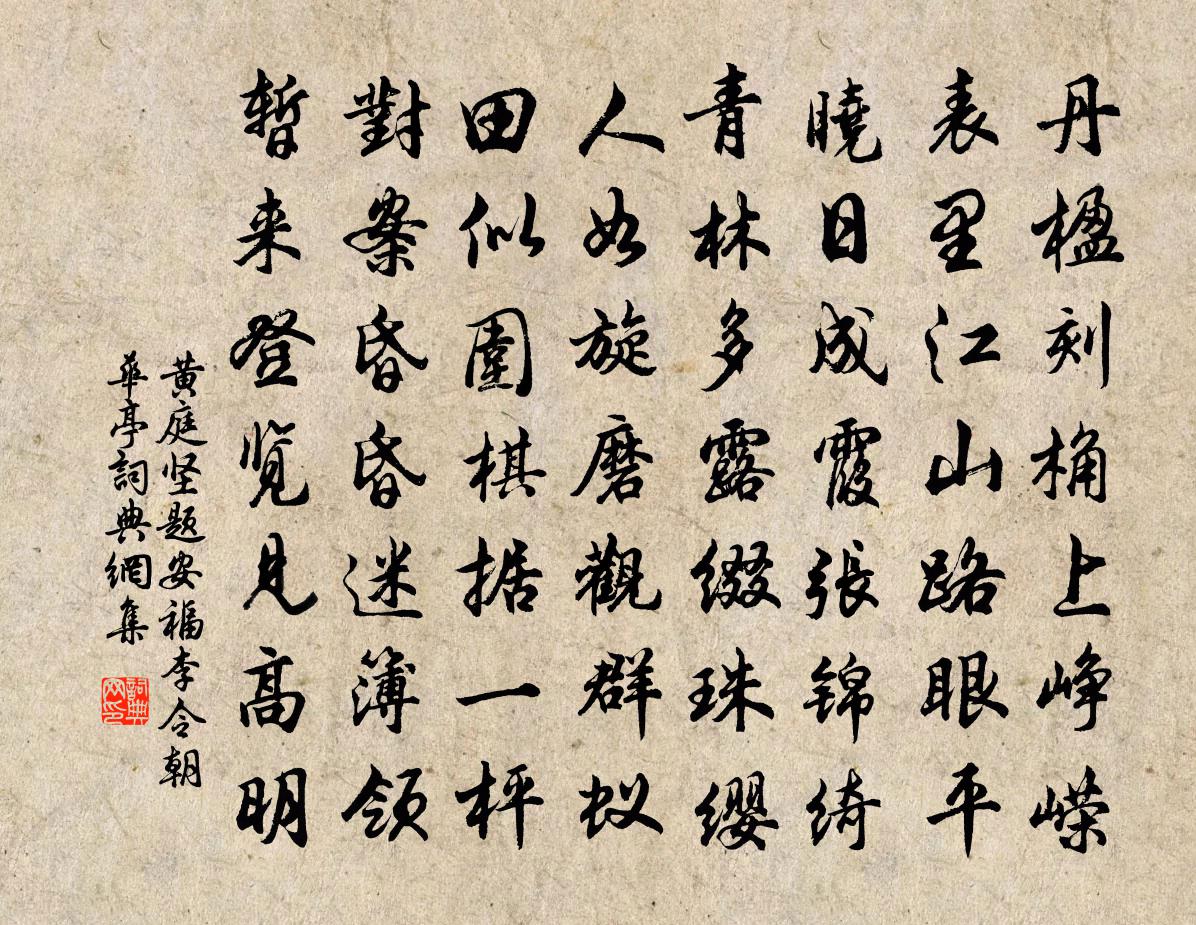 丹楹刻桷上峥嵘
表里江山路眼平
曉日成霞張锦绮
青林多露缀珠缨
人如旋磨觀群蚁
田似圍棋据一枰
對案昏昏迷簿领
暂来登览見高明
黄庭坚题安福李令朝
華亭詞典網集
詞典网印